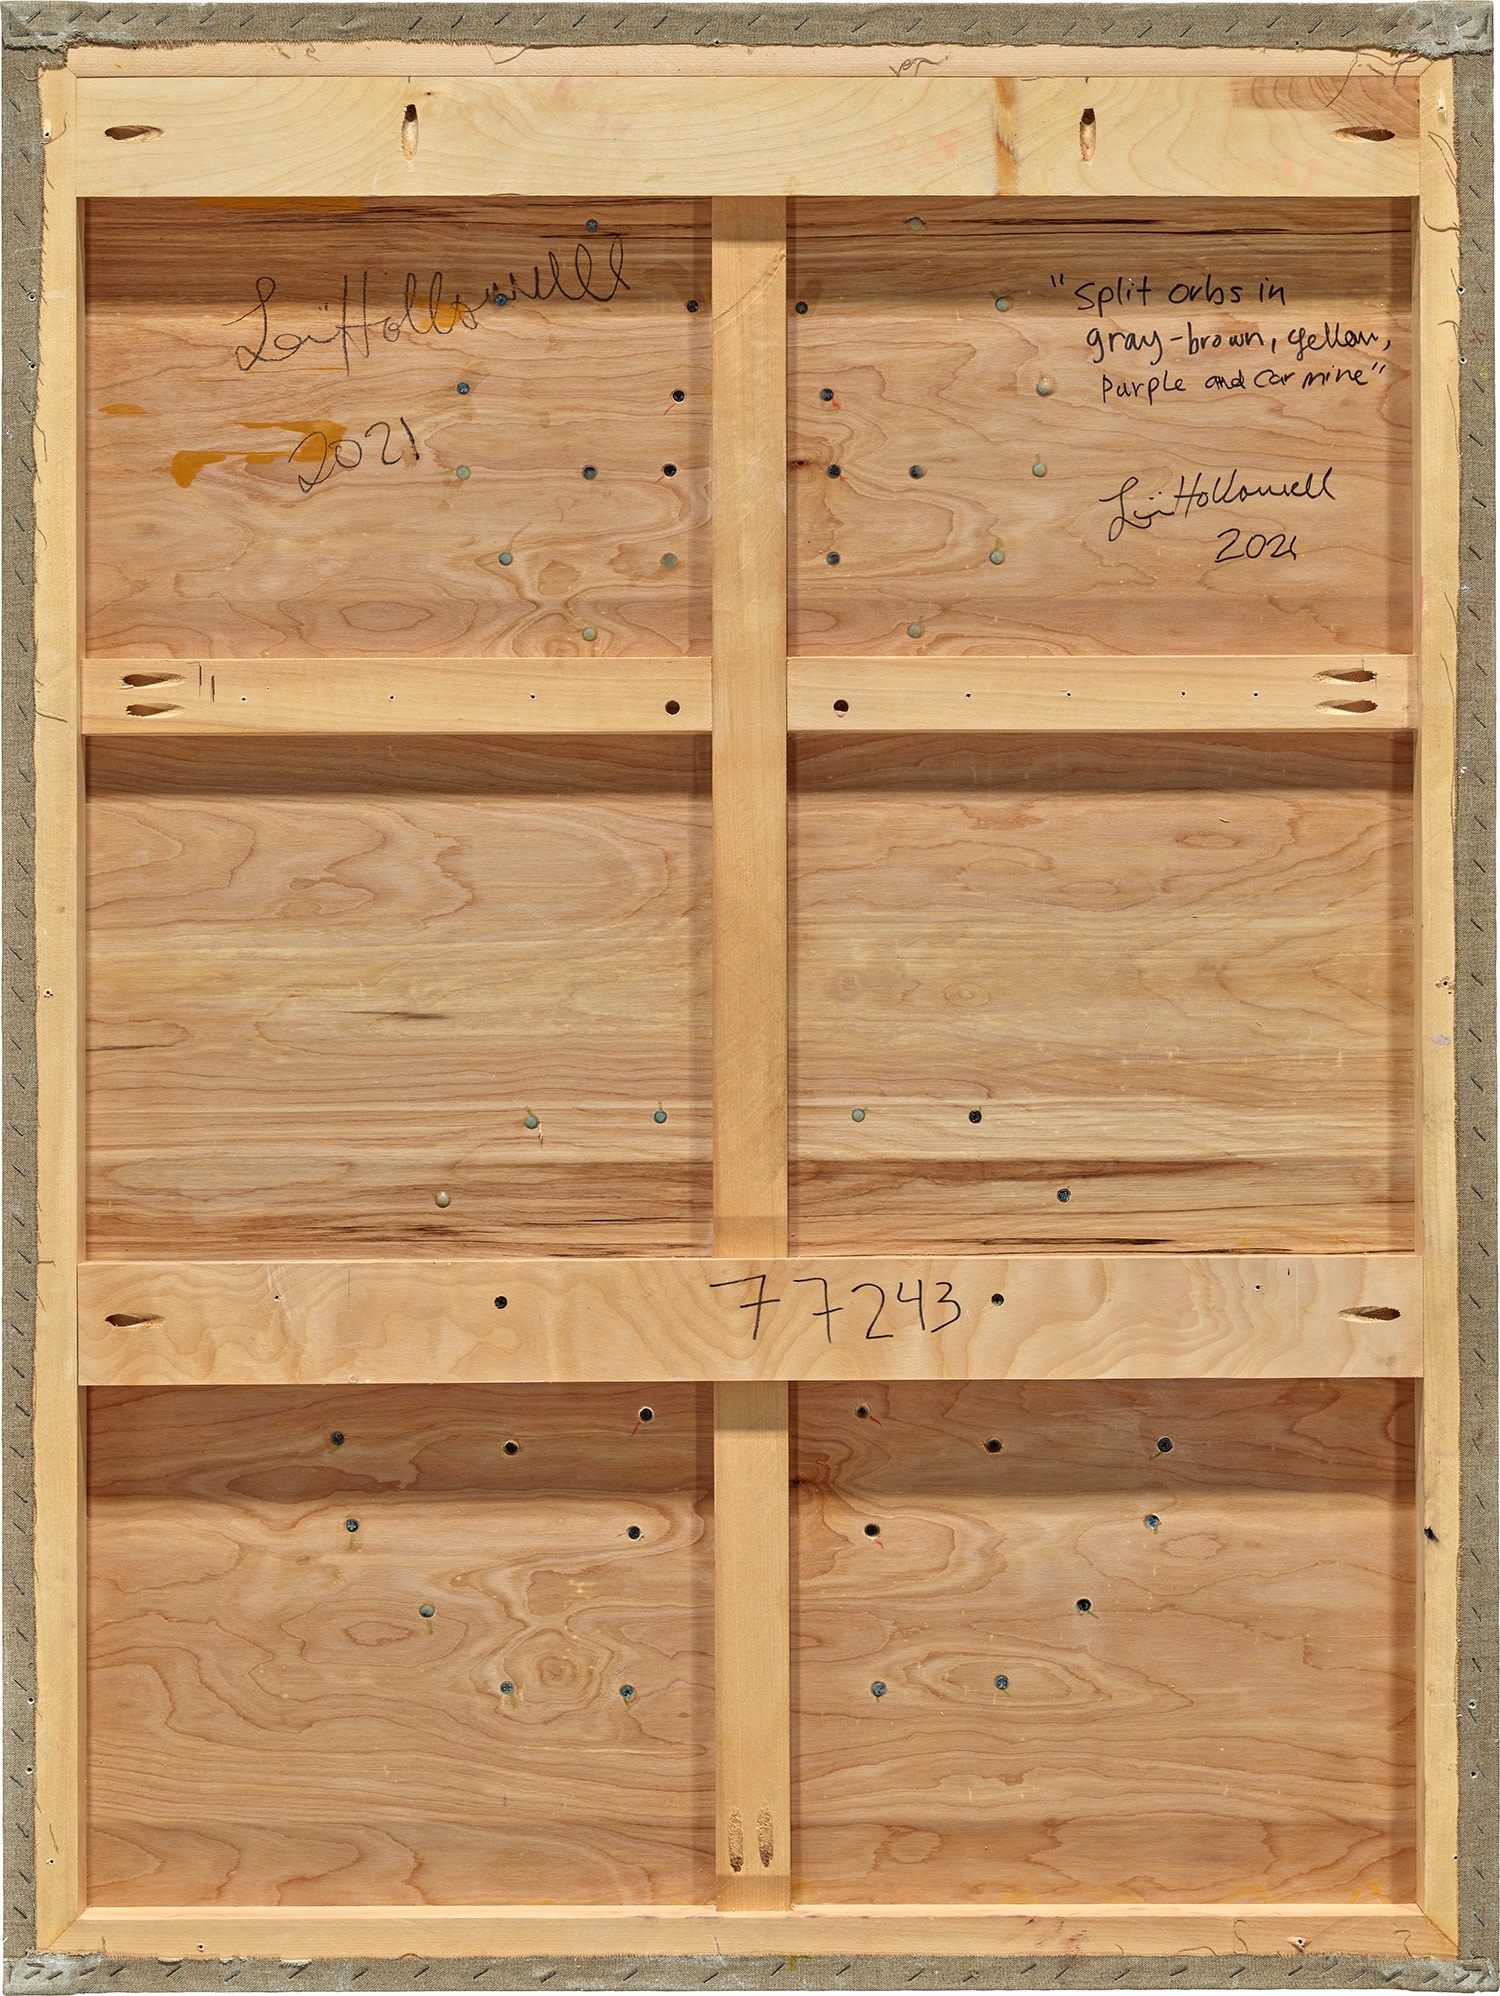 Loïe Hollowell
2021
"Split orbs in
gray-brown, yellow,
purple and carmine"
Loïe Hollowell
2021
77243